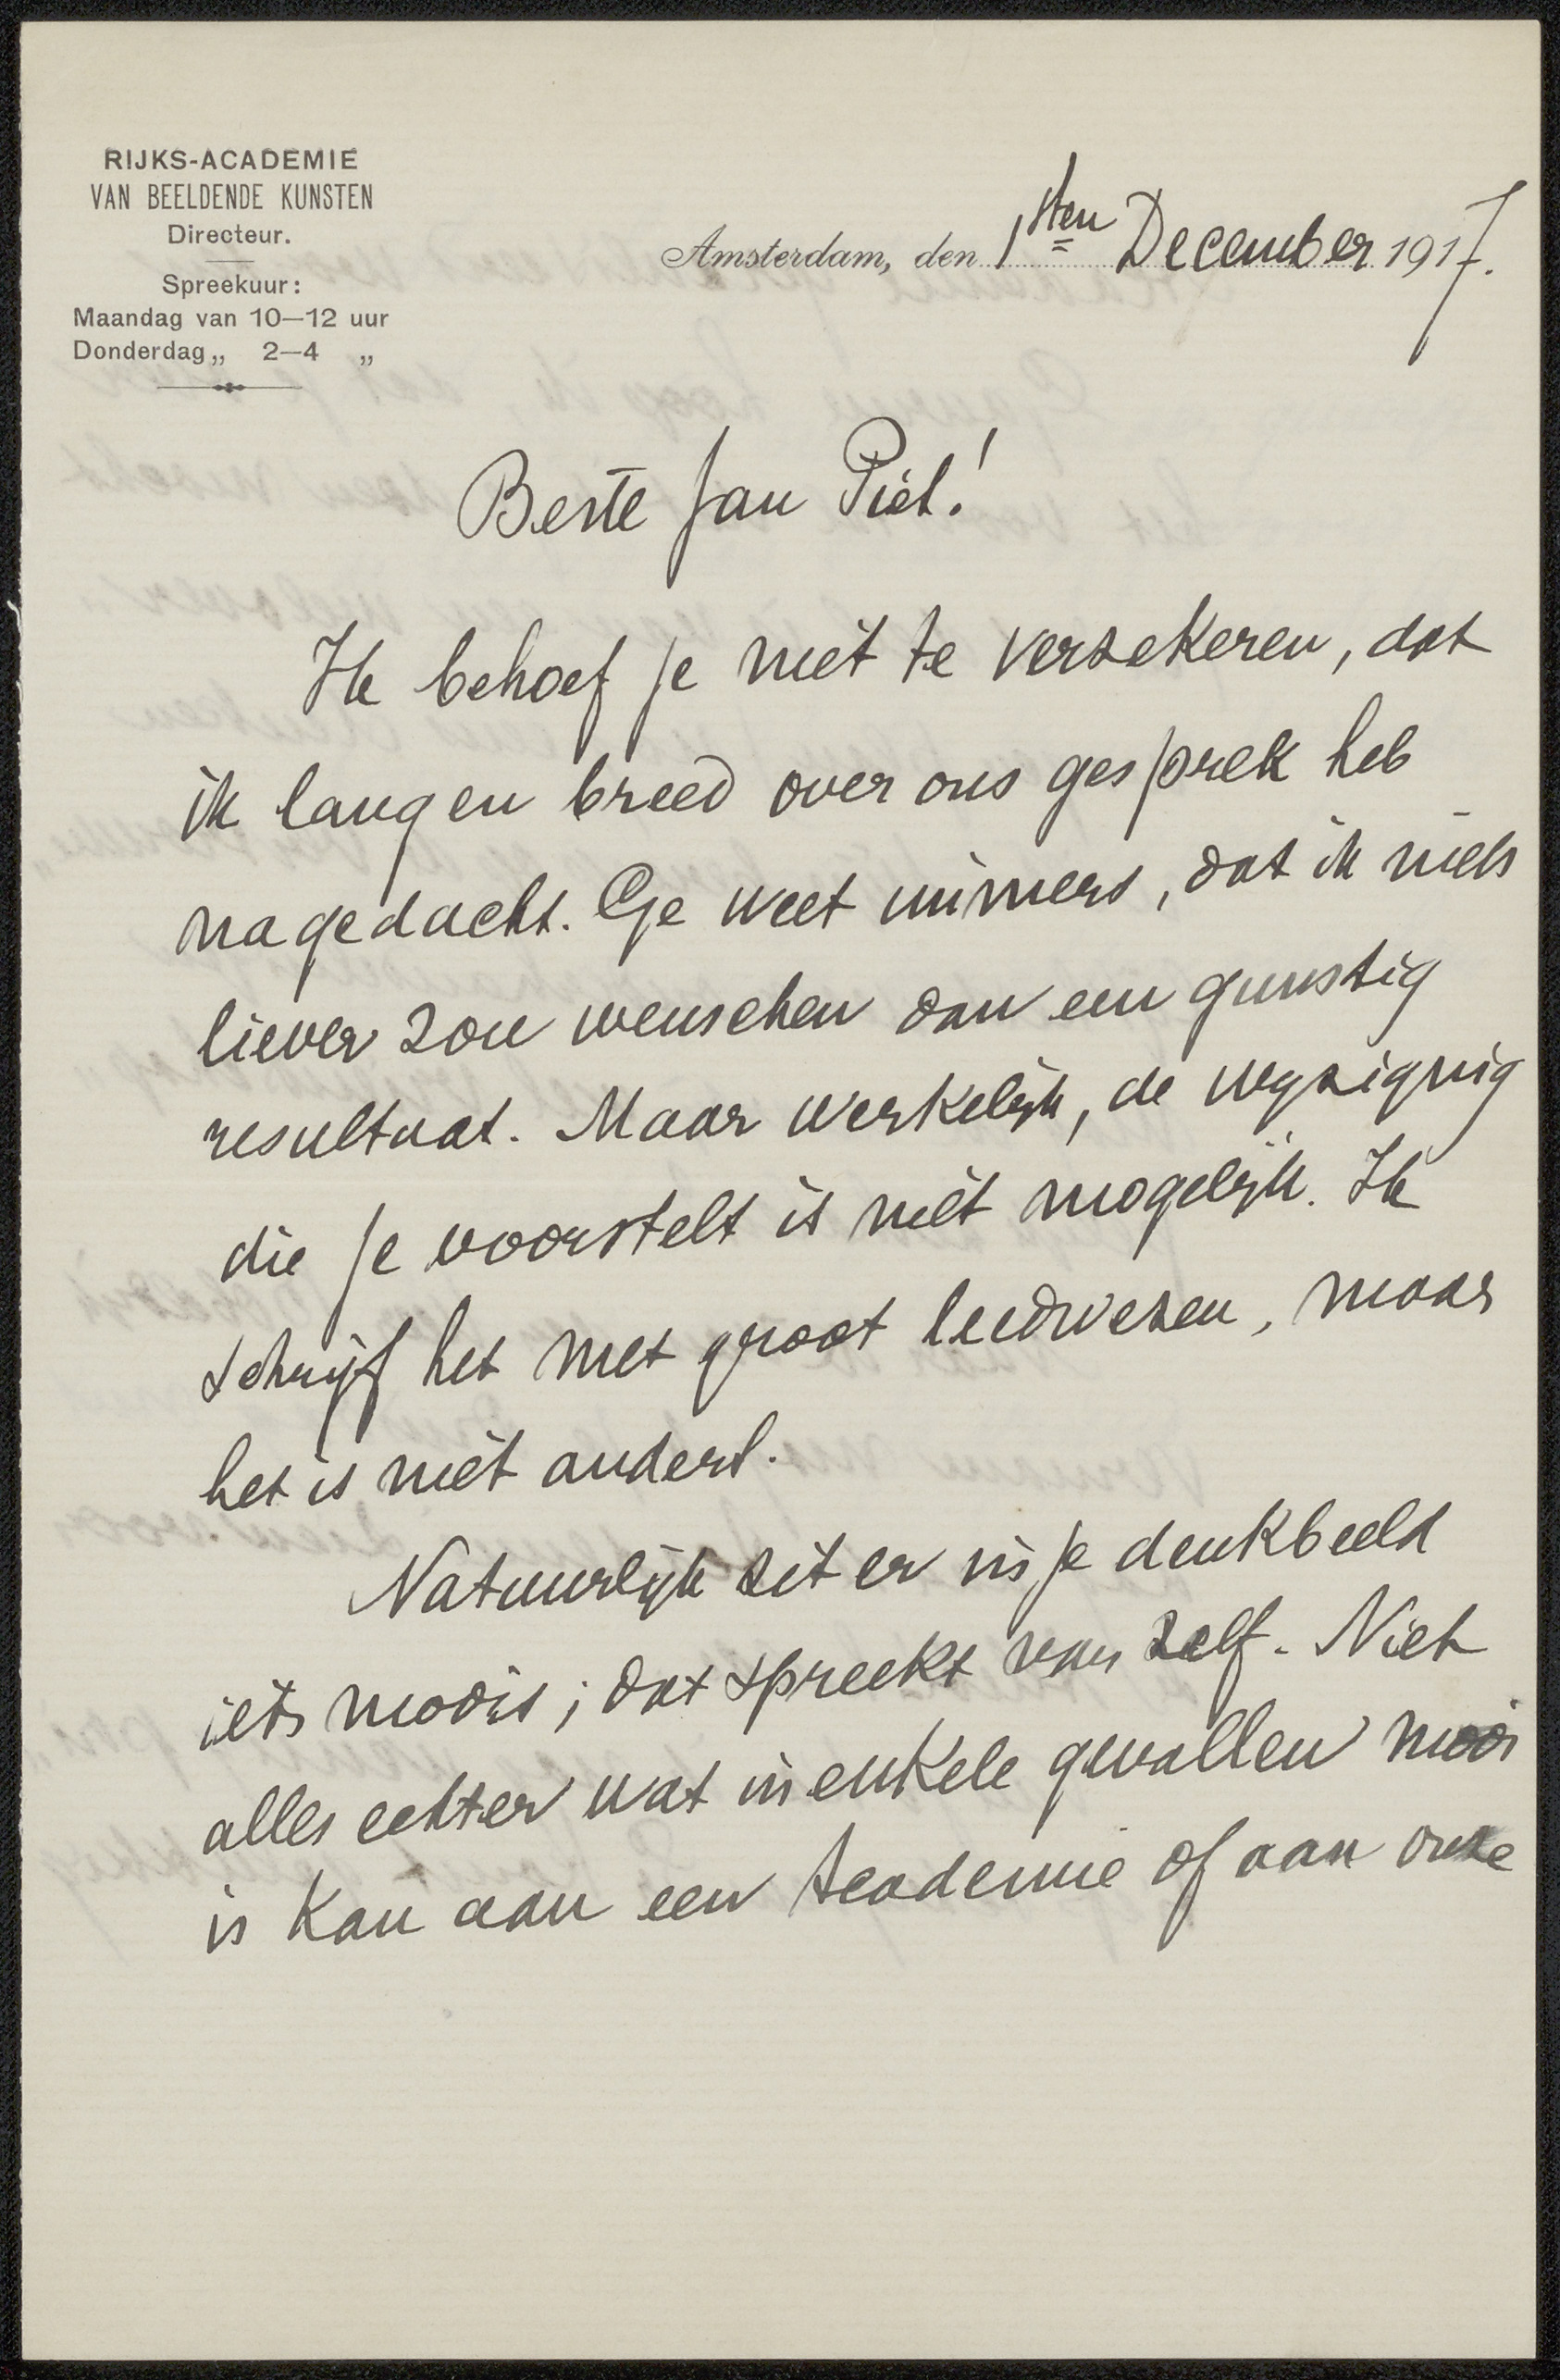 RIJKS-ACADEMIE
VAN BEELDENDE KUNSTEN
Directeur.
Spreekuur:
Maandag van 10—12 uur
Donderdag „ 2—4 „
Amsterdam, den 1sten December 1917.
Beste Jan Piet!
Ik behoef je niet te verzekeren, dat
ik lang en breed over ons gesprek heb
nagedacht. Ge weet immers, dat ik niets
liever zou wenschen dan een gunstig
resultaat. Maar werkelijk, de wyziging
die je voorstelt is niet mogelijk. Ik
schrijf het met groot leedwezen, maar
het is niet anders.
Natuurlijk zit er in je denkbeeld
iets moois; dat spreekt van zelf. Niet
alles echter wat in enkele gevallen mooi
is kan aan een Academie of aan onze